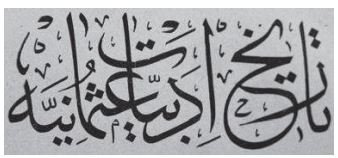 تاريخ ادبيات عثمانيه